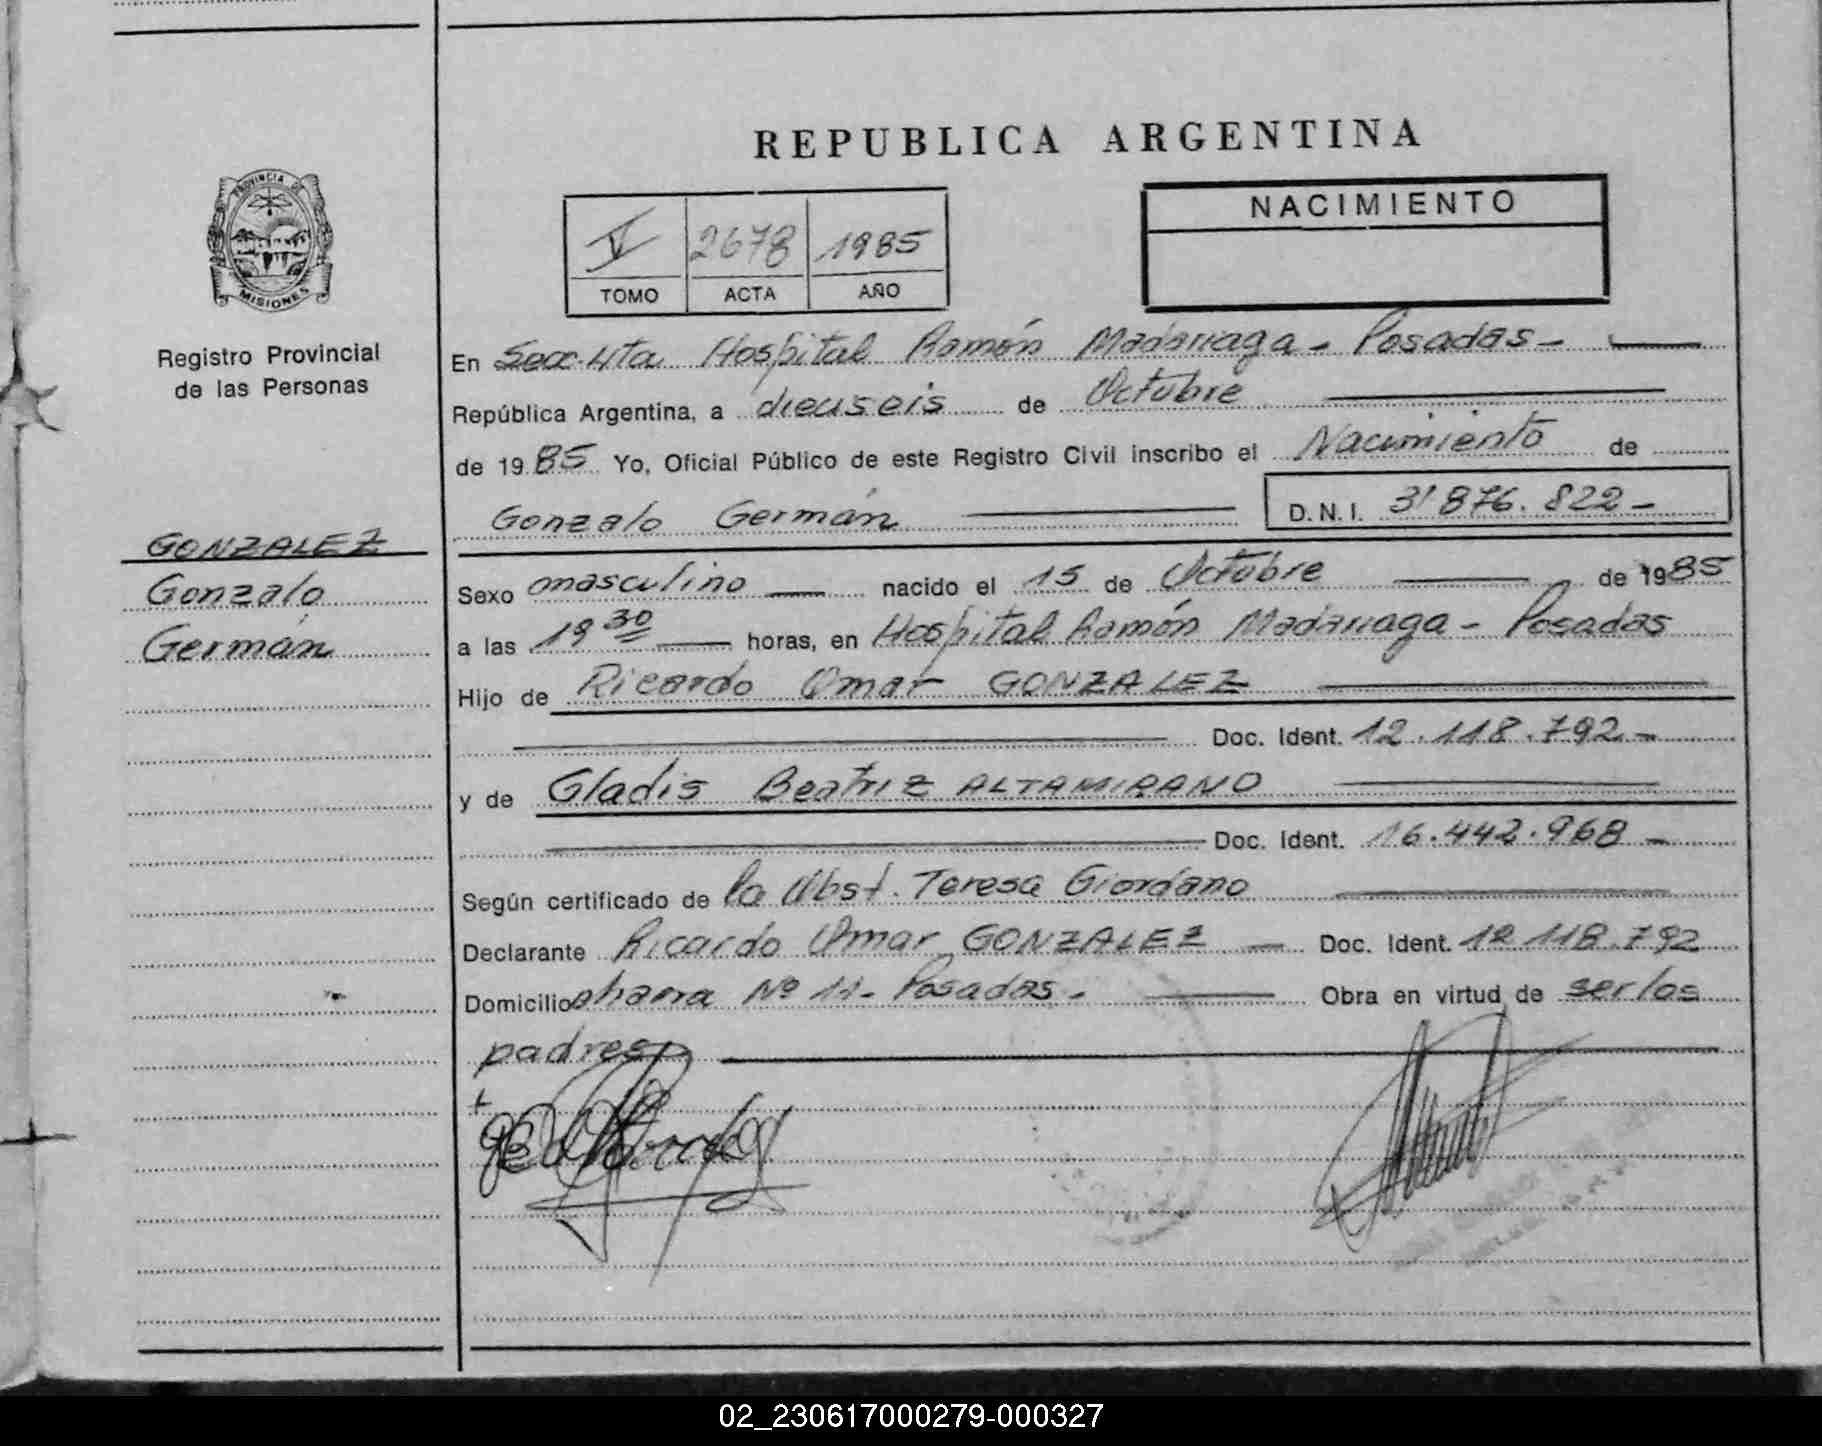 REPUBLICA ARGENTINA
PROVINCIA DE
MISIONES
Registro Provincial
de las Personas
V 2678 1985
TOMO ACTA AÑO
NACIMIENTO
En Secc. 4ta Hospital Ramón Madariaga - Posadas -
República Argentina, a dieciseis de Octubre
de 1985 Yo, Oficial Público de este Registro Civil inscribo el Nacimiento de
Gonzalo Germán D.N.I. 31 876.822 -
GONZALEZ
Gonzalo
Germán
Sexo masculino nacido el 15 de Octubre de 1985
a las 19 30 horas, en Hospital Ramón Madariaga - Posadas
Hijo de Ricardo Omar GONZALEZ
Doc. Ident. 12.118.792 -
y de Gladis Beatriz ALTAMIRANO
Doc. Ident. 16.442.968 -
Según certificado de la Obst. Teresa Giordano
Declarante Ricardo Omar GONZALEZ Doc. Ident. 12 118.792
Domicilio chacra Nº 11 - Posadas - Obra en virtud de ser los
padres
02_230617000279-000327